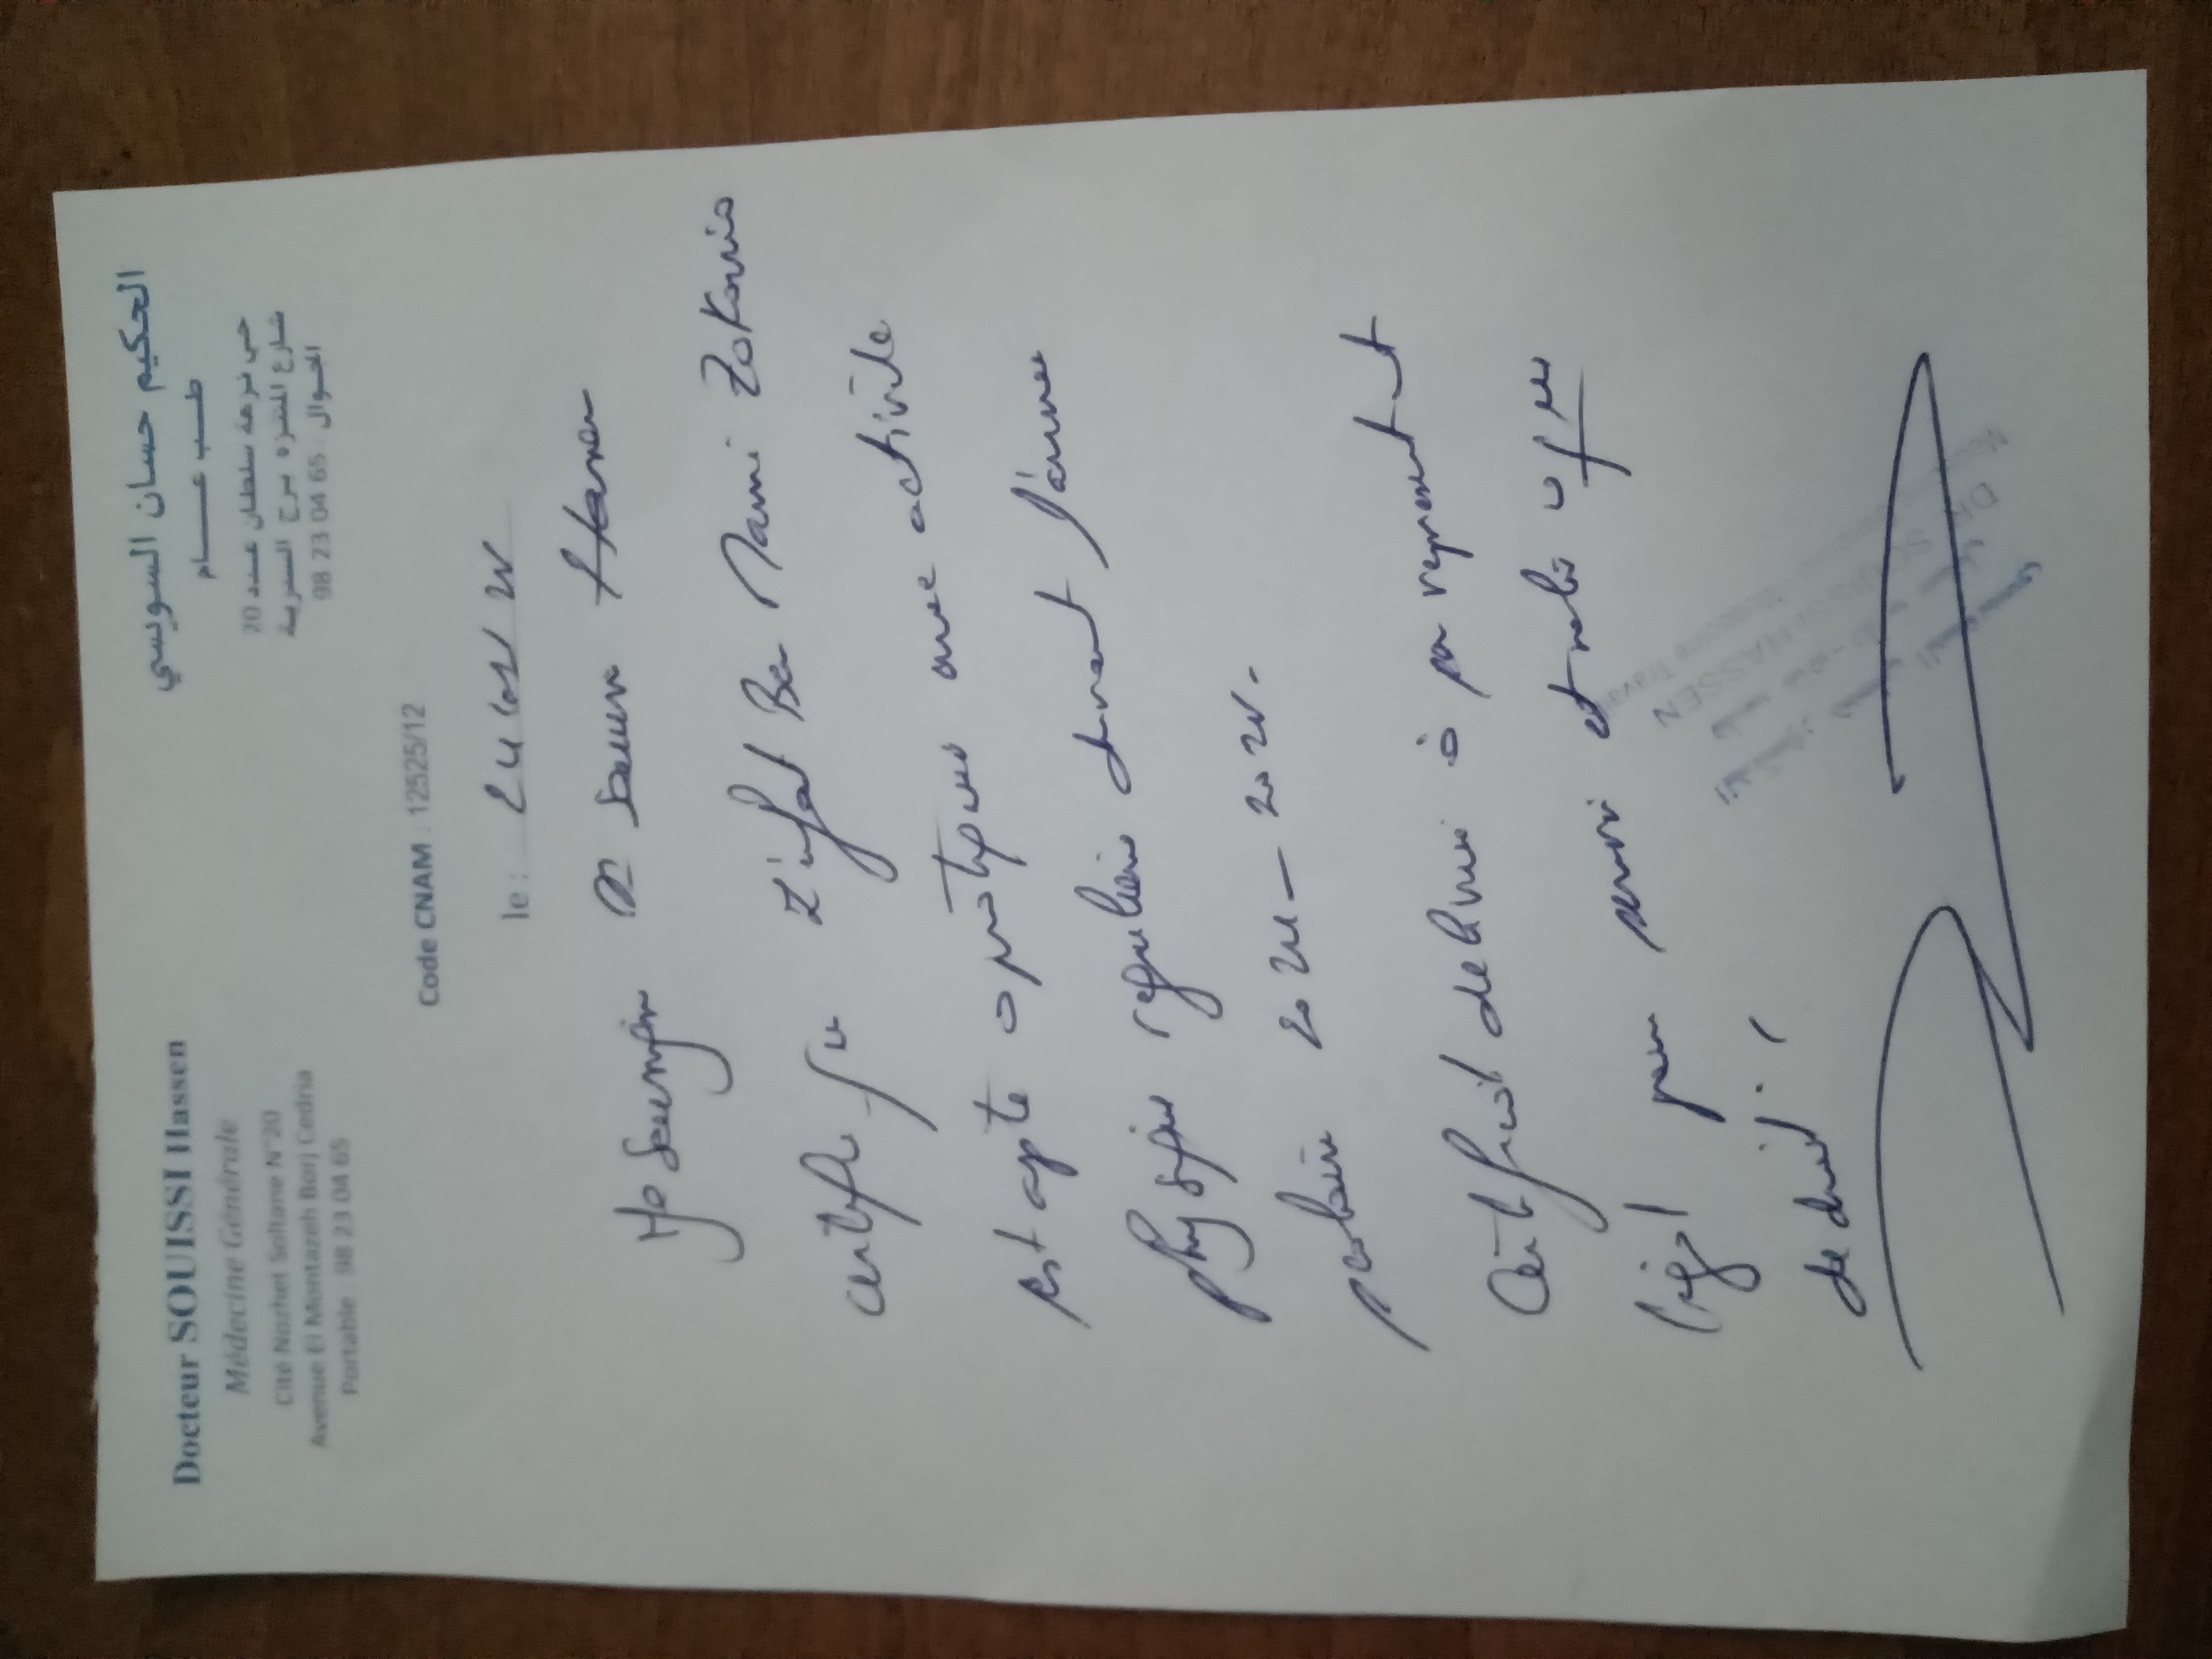 Docteur SOUISSI Hassen
Médecine Générale
Cité Nozhet Soltane N°20
Avenue El Montazeh Borj Cedria
Portable : 98 23 04 65
الحكيم حسان السويسي
طب عام
حي نزهة سلطان عدد 20
شارع المنتزه برج السدرية
الجوال : 98 23 04 65
Code CNAM : 12525/12
le :
Je soussigné Dr Souissi Hassen
certifie que l'enfant Ben Zakaria
est apte à pratiquer une activité
physique régulière durant l'année
scolaire
Certificat délivré à son représentant
légal pour servir et valoir ce que
de droit.
DR SOUISSI HASSEN